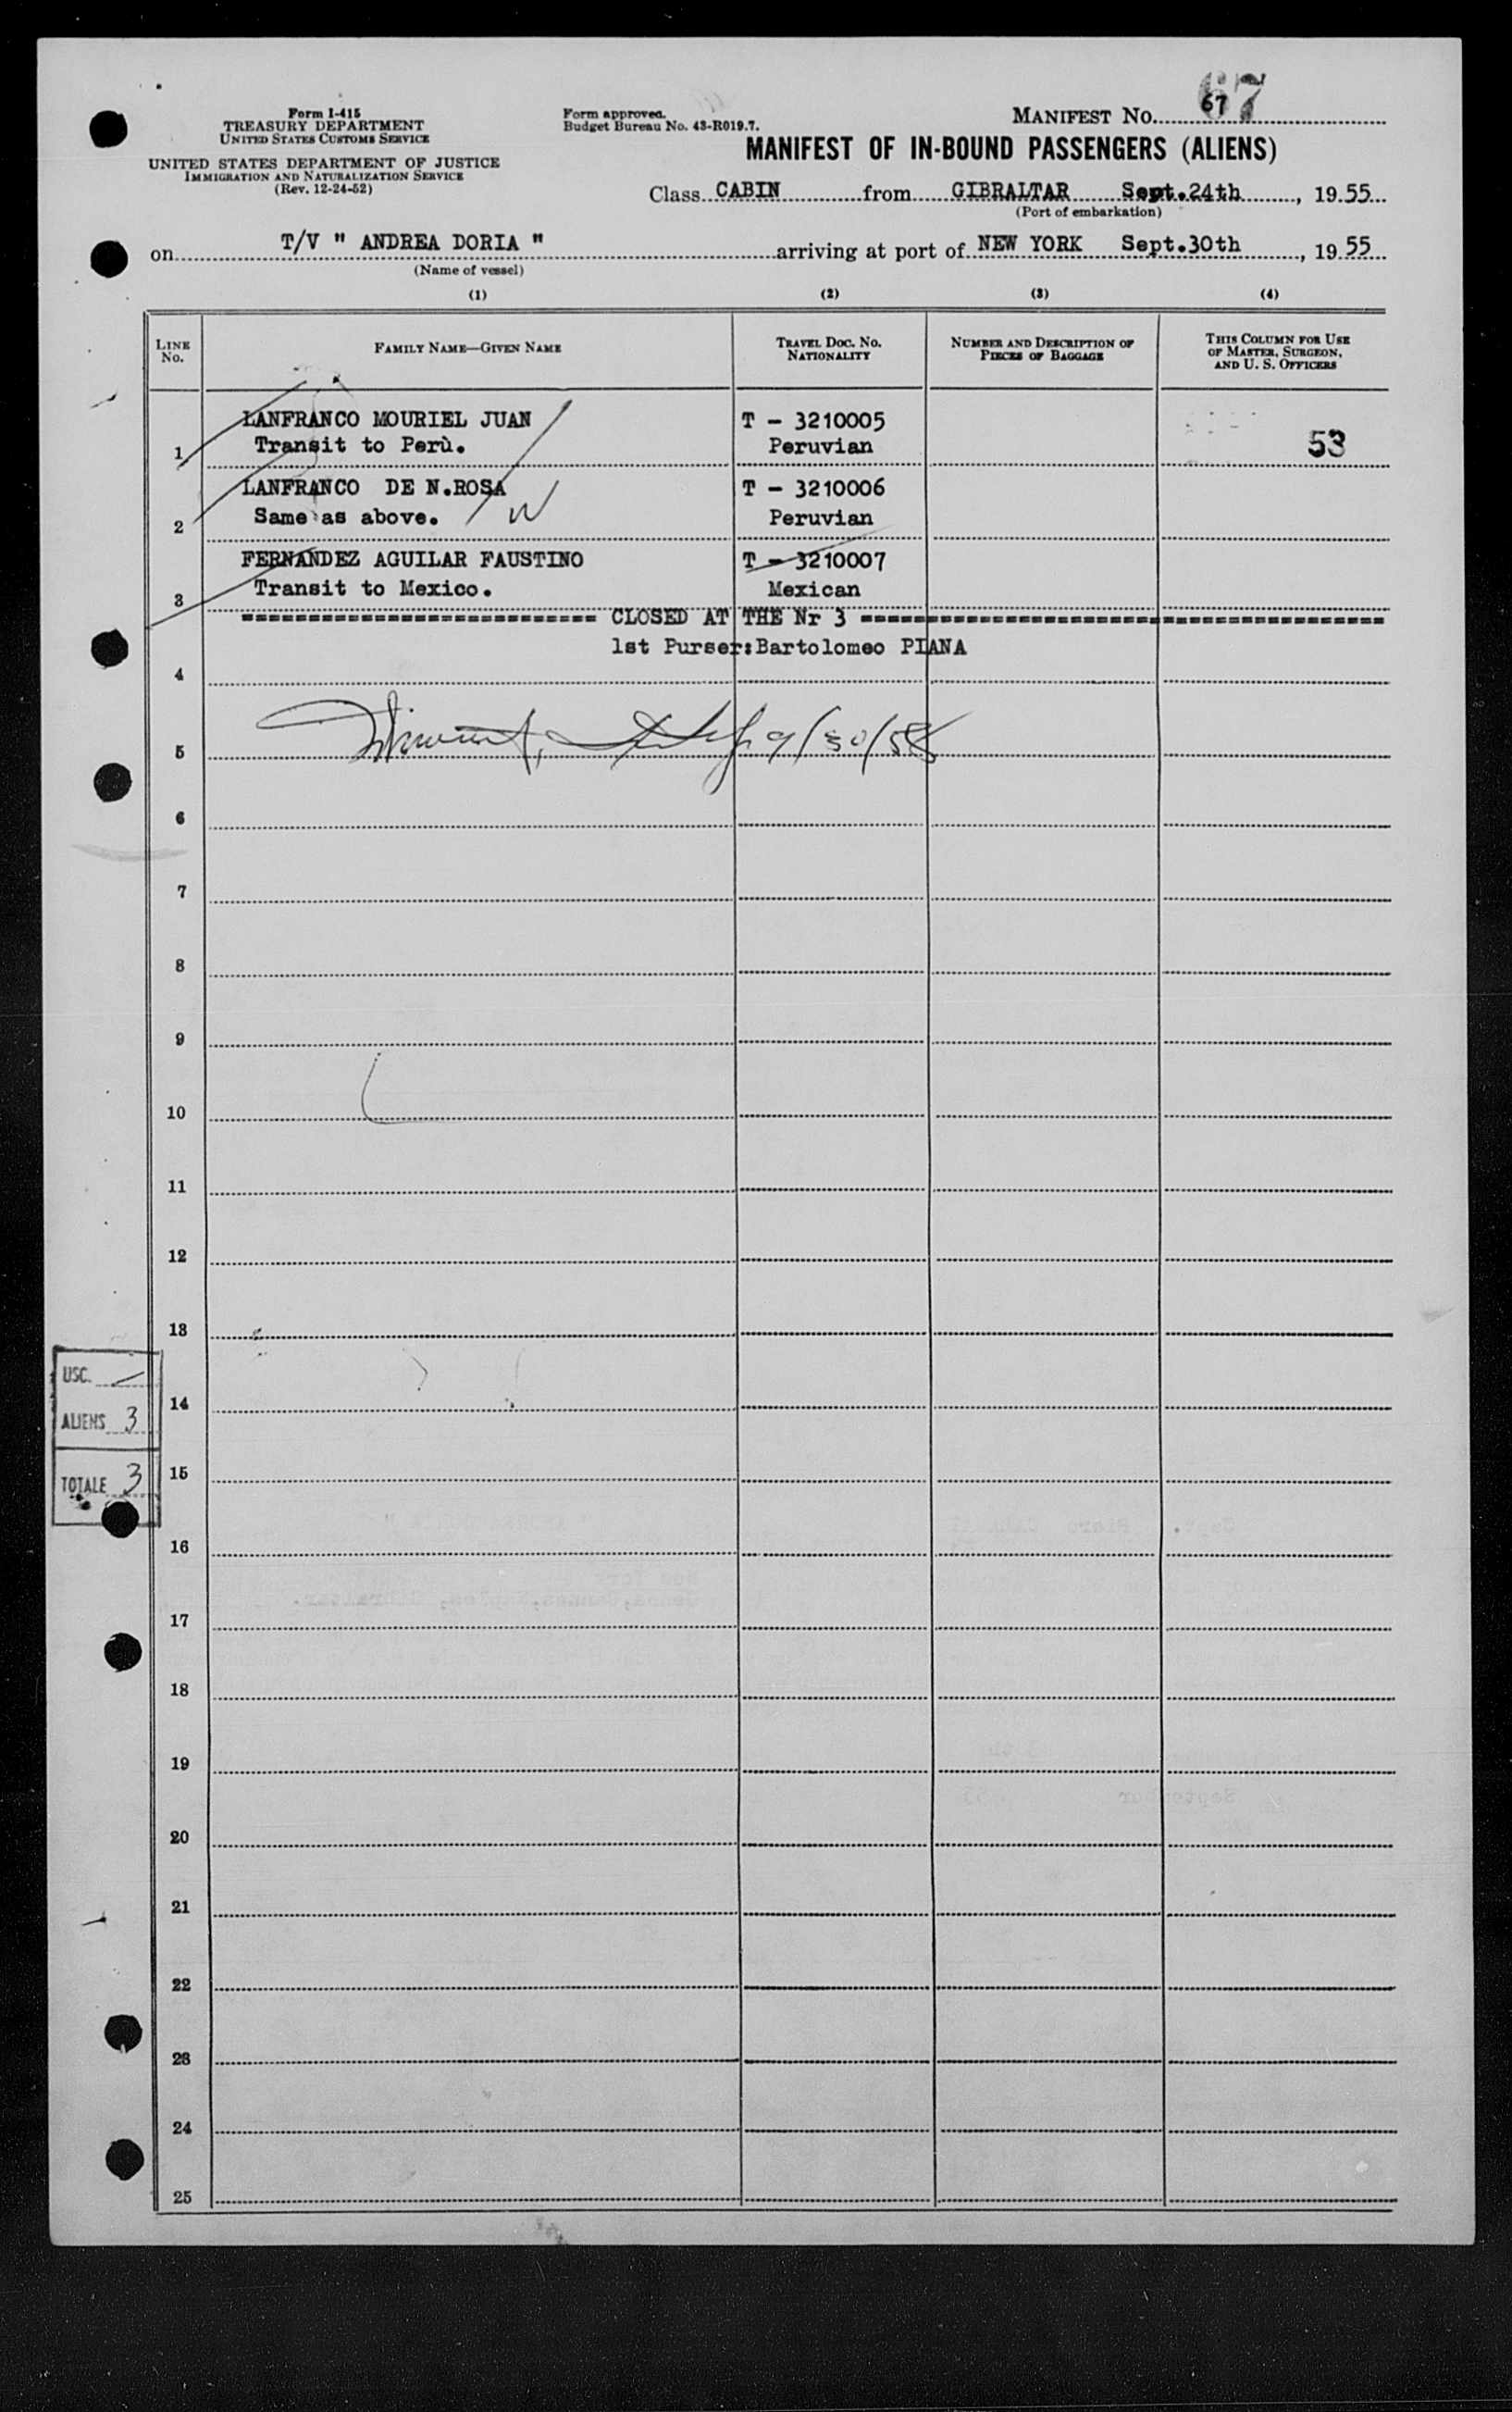 67
Form I-415
TREASURY DEPARTMENT
UNITED STATES CUSTOMS SERVICE
UNITED STATES DEPARTMENT OF JUSTICE
IMMIGRATION AND NATURALIZATION SERVICE
(Rev. 12-24-52)
Form approved.
Budget Bureau No. 43-R019.7.
MANIFEST NO. 67
MANIFEST OF IN-BOUND PASSENGERS (ALIENS)
Class CABIN from GIBRALTAR Sept.24th, 1955
(Port of embarkation)
on T/V " ANDREA DORIA " arriving at port of NEW YORK Sept.30th, 1955
(Name of vessel)
(1) (2) (3) (4)
LINE NO. FAMILY NAME—GIVEN NAME TRAVEL DOC. NO. NATIONALITY NUMBER AND DESCRIPTION OF PIECES OF BAGGAGE THIS COLUMN FOR USE OF MASTER, SURGEON, AND U. S. OFFICERS
LANFRANCO MOURIEL JUAN T - 3210005
1 Transit to Perù. Peruvian 53
LANFRANCO DE N.ROSA T - 3210006
2 Same as above. Peruvian
FERNANDEZ AGUILAR FAUSTINO T - 3210007
3 Transit to Mexico. Mexican
=========================== CLOSED AT THE Nr 3 ========================================
1st Purser:Bartolomeo PIANA
4
5
6
7
8
9
10
11
12
13
USC.
14
ALIENS 3
15
TOTALE 3
16
17
18
19
20
21
22
23
24
25